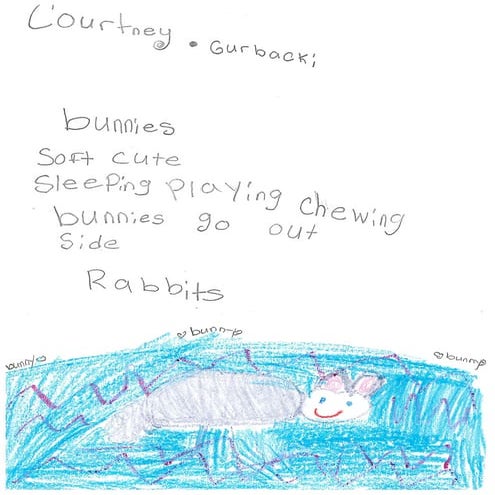 Courtney • Gurbacki
bunnies
Soft cute
Sleeping playing chewing
bunnies go out
Side
Rabbits
bunny
bunny
bunny